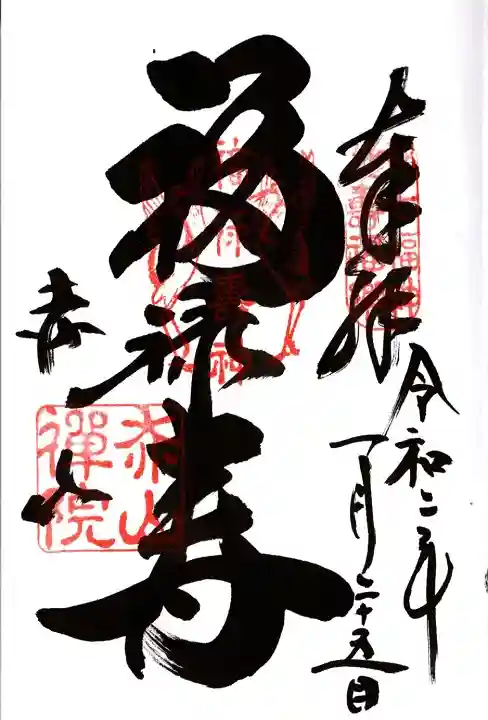 奉拝
令和二年
一月二十五日
福禄寿
赤山
赤山
禪院